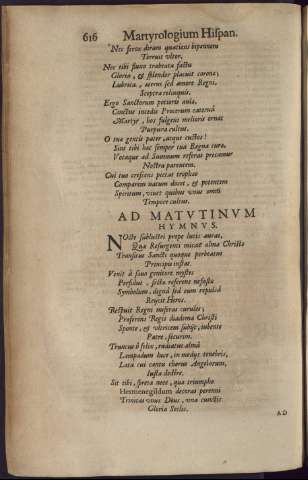 616 Martyrologium Hispan.
Nec feros diram quatiens bipennem
Terruit vltor.
Nec tibi fluxo trabeata fastu
Gloria, & splendor placuit coronæ,
Lubrica, æterni sed amore Regni,
Sceptra relinquis.
Ergo Sanctorum potiaris aula,
Cinctus incedis Procerum catenâ
Martyr, hos fulgens melioris ornat
Purpura cultus.
O tuæ gentis pater, atque custos!
Sint tibi hæc semper tua Regna curæ,
Votaque ad Summum referas precamur
Nostra parentem.
Cui tuo crescens pietas trophæo
Comparem natum docet, & potentem
Spiritum, vivet quibus vnus omni
Tempore cultus.
AD MATVTINVM
HYMNVS.
NOcte sublustri prope lucis auras,
Qua Resurgenti micat alma Christo
Transitus Sancti quoque perbeatus
Principis instat.
Venit à sævo genitore mystes
Perfidus, secta referens nefastæ
Symbolum, dignâ sed eum repulsâ
Reijcit Heros.
Restuit Regni miseras curules;
Præferens Regis diadema Christi
Sponte, & vltricem subijt, iubente
Patre, securim.
Truncus ô felix, radiatus almâ
Lampadum luce, in medijs tenebris,
Læta cui cantu chorus Angelorum,
Iusta dedére.
Sit tibi, spreta nece, qua triumpho
Hermenegildum decoras perenni
Trinitas vnus Deus, vna cunctis
Gloria Sæclis.
AD